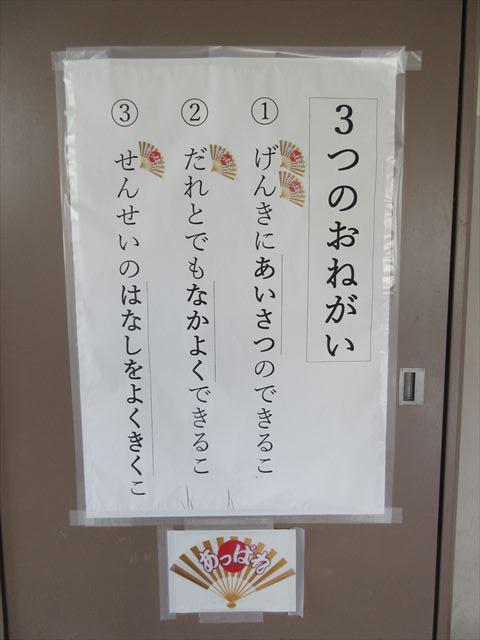 3つのおねがい
① げんきにあいさつのできるこ
② だれとでもなかよくできるこ
③ せんせいのはなしをよくきくこ
あっぱれ